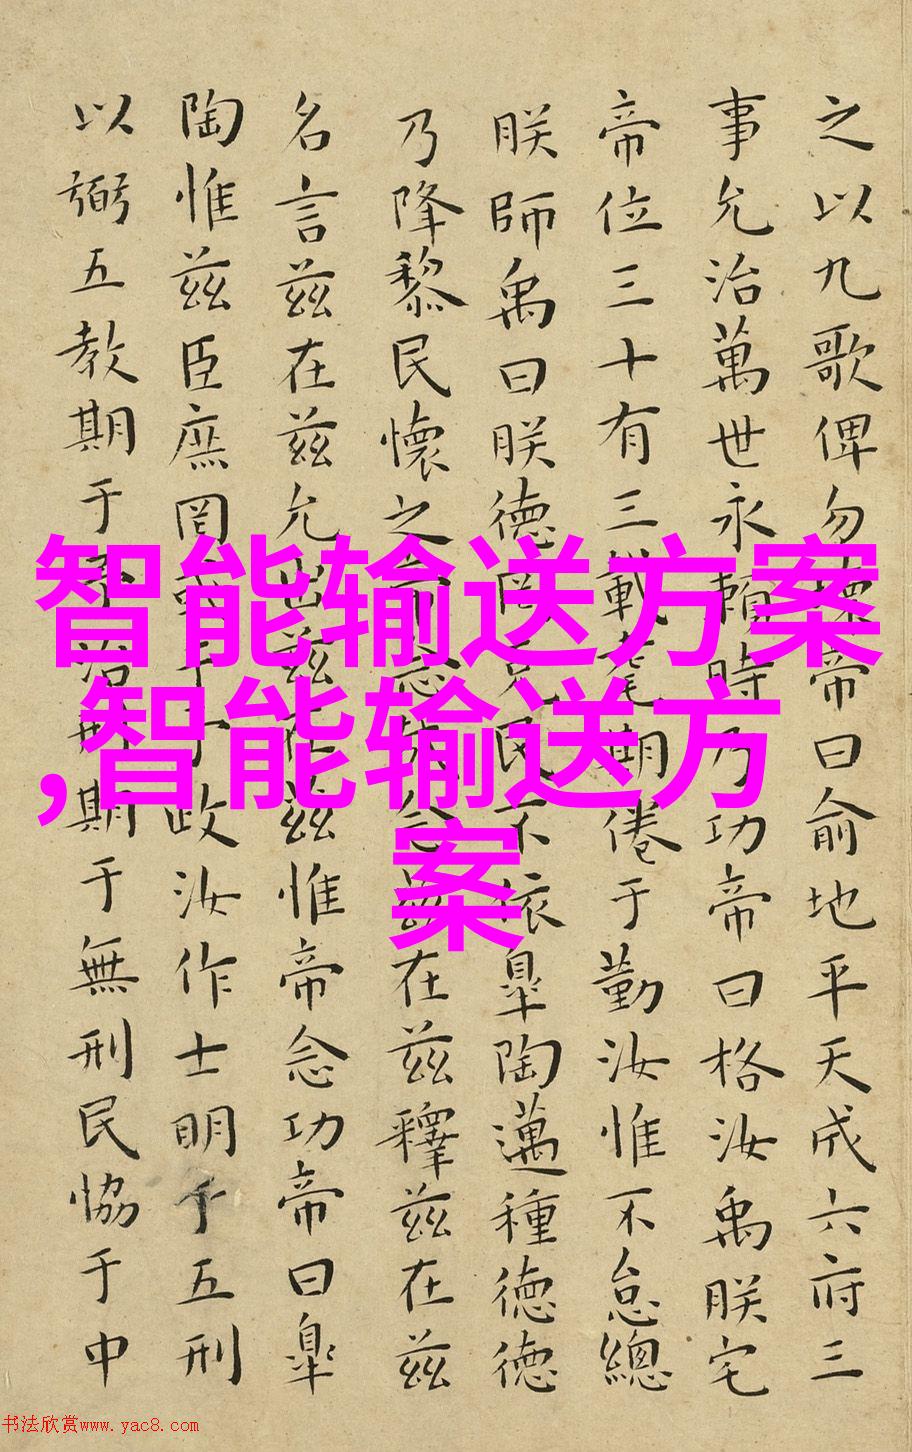 之以九歌俾勿壞帝曰俞地平天成六府三
事允治萬世永賴時乃功帝曰格汝禹朕宅
帝位三十有三載耄期倦于勤汝惟不怠總
朕師禹曰朕德罔克民不依皐陶邁種德德
乃降黎民懷之帝念哉念兹在兹釋兹在兹
名言兹在兹允出兹在兹惟帝念功帝曰皐
陶惟兹臣庶罔或于予政汝作士明于五刑
以弼五教期于予治刑期于無刑民恊于中
智能输送方案
,智能输送方
案
书法欣赏www.yac8.com